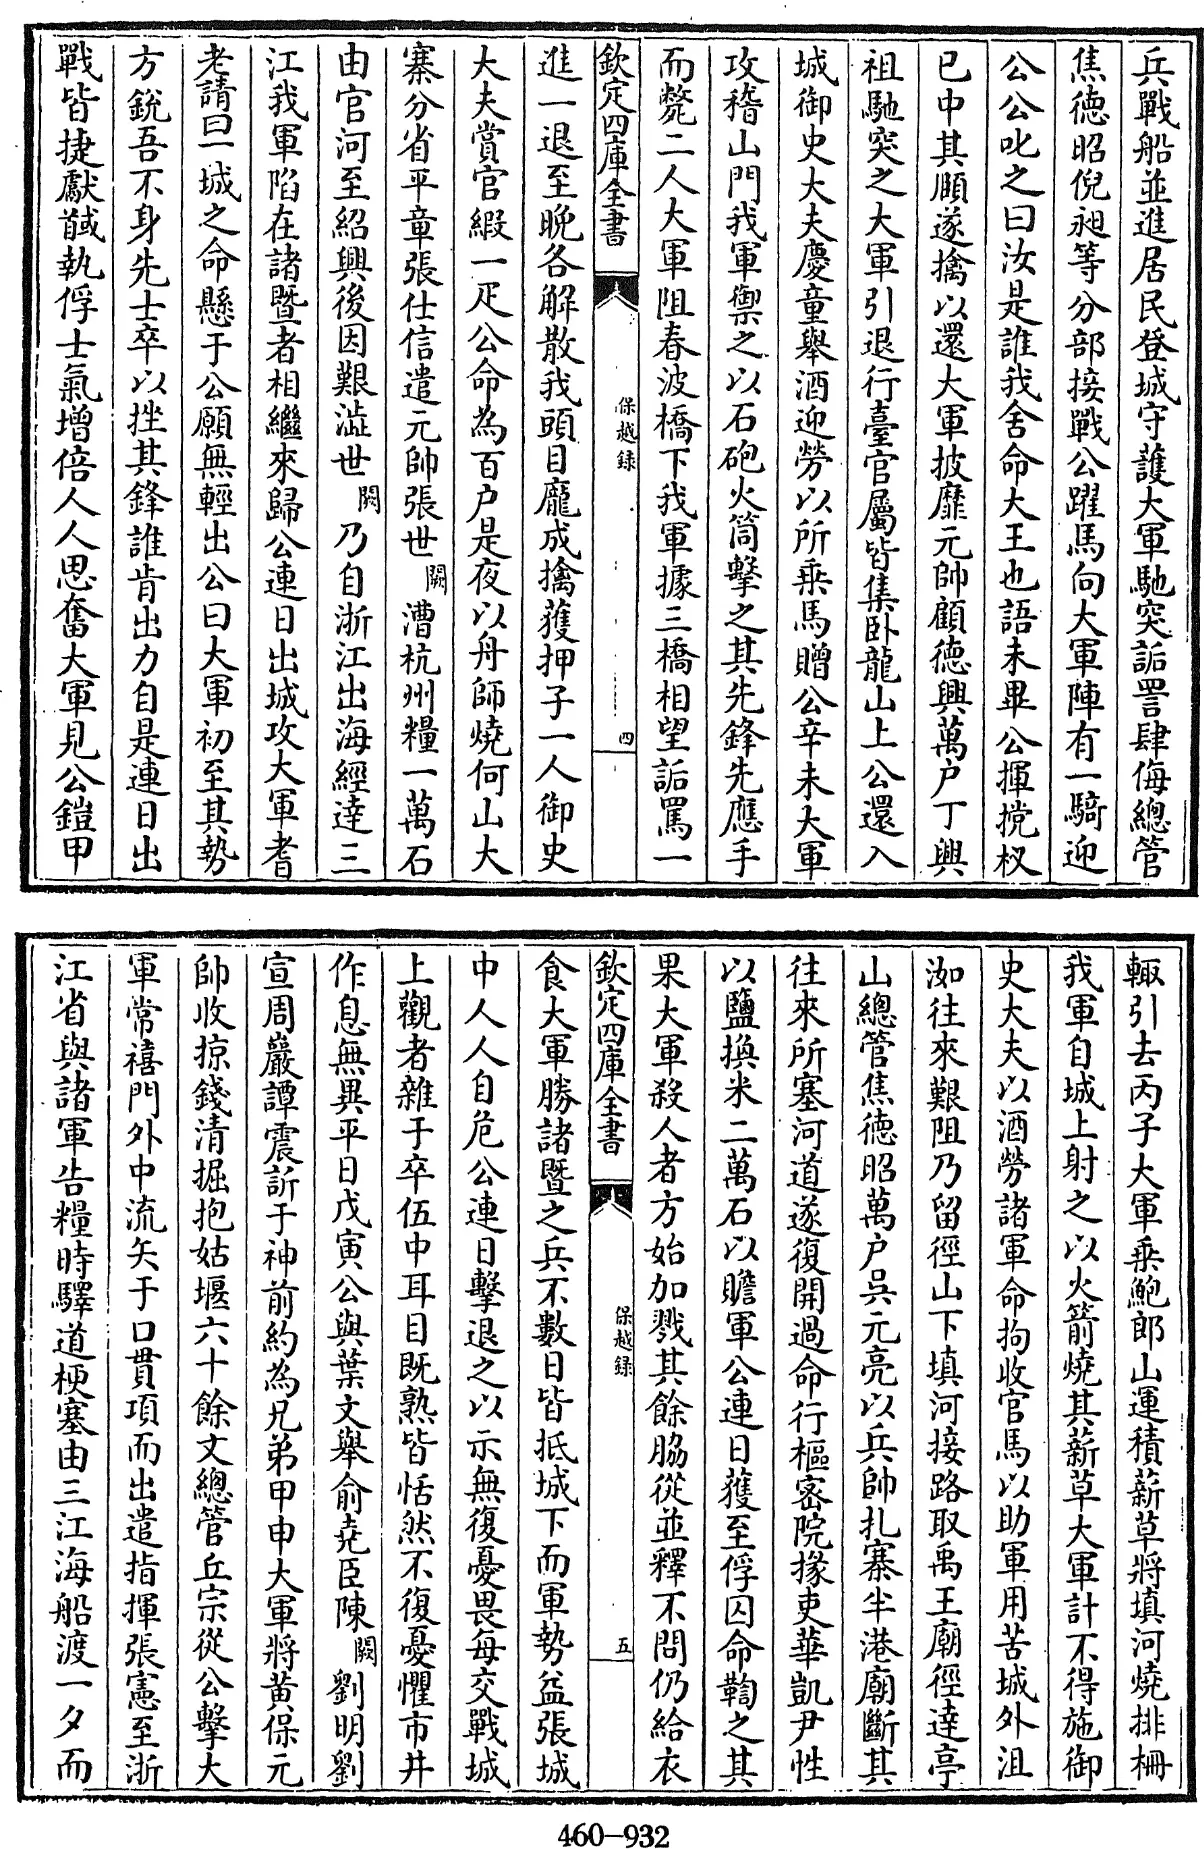 兵戰船並進居民登城守護大軍馳突詬詈肆侮總管
焦德昭倪昶等分部接戰公躍馬向大軍陣有一騎迎
公公叱之曰汝是誰我舍命大王也語未畢公揮攩杈
已中其頤遂擒以還大軍披靡元帥顧德興萬户丁興
祖馳突之大軍引退行臺官屬皆集卧龍山上公還入
城御史大夫慶童舉酒迎勞以所乗馬贈公辛未大軍
攻稽山門我軍禦之以石砲火筒擊之其先鋒先應手
而斃二人大軍阻春波橋下我軍據三橋相望詬罵一
欽定四庫全書 保越録 四
進一退至晩各解散我頭目龎成擒獲押子一人御史
大夫賞官緞一疋公命為百户是夜以舟師燒何山大
寨分省平章張仕信遣元帥張世闕漕杭州糧一萬石
由官河至紹興後因艱澁世闕乃自浙江出海經達三
江我軍陷在諸暨者相繼來歸公連日出城攻大軍耆
老請曰一城之命懸于公願無輕出公曰大軍初至其勢
方銳吾不身先士卒以挫其鋒誰肯出力自是連日出
戰皆捷獻馘執俘士氣增倍人人思奮大軍見公鎧甲
輙引去丙子大軍乗鮑郎山運積薪草將填河燒排柵
我軍自城上射之以火箭燒其薪草大軍計不得施御
史大夫以酒勞諸軍命拘收官馬以助軍用苦城外沮
洳往來艱阻乃留徑山下填河接路取禹王廟徑達亭
山總管焦德昭萬户吳元亮以兵帥扎寨半港廟斷其
往來所塞河道遂復開過命行樞宻院掾吏華凱尹性
以鹽換米二萬石以贍軍公連日獲至俘囚命鞫之其
果大軍殺人者方始加戮其餘脇從並釋不問仍給衣
欽定四庫全書 保越録 五
食大軍勝諸暨之兵不數日皆抵城下而軍勢益張城
中人人自危公連日擊退之以示無復憂畏每交戰城
上觀者雜于卒伍中耳目既熟皆恬然不復憂懼市井
作息無異平日戊寅公與葉文舉俞堯臣陳闕劉明劉
宣周巖譚震訢于神前約為兄弟甲申大軍將黄保元
帥收掠錢清掘抱姑堰六十餘丈總管丘宗從公擊大
軍常禧門外中流矢于口貫項而出遣指揮張憲至浙
江省與諸軍告糧時驛道梗塞由三江海船渡一夕而
460-932